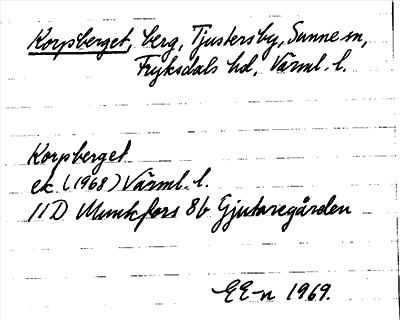 Korpsberget, berg, Tjustersby, Sunne sn,
Fryksdals hd, Värml. l.
Korpsberget
ek. (1968) Värml. l.
11D Munkfors 8b Gjutaregården
EE-n 1969.